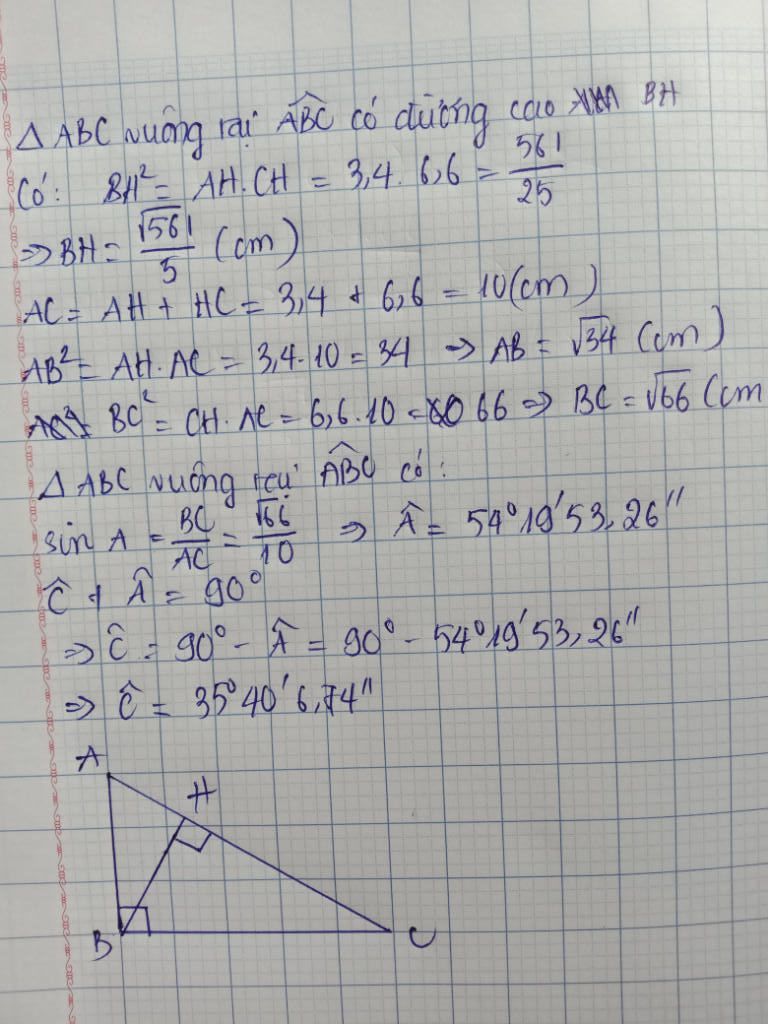 Δ ABC vuông tại \widehat{ABC} có đường cao BH
Có: BH² = AH.CH = 3,4 . 6,6 = 561/25
=> BH = √561/5 (cm)
AC = AH + HC = 3,4 + 6,6 = 10 (cm)
AB² = AH.AC = 3,4.10 = 34 => AB = √34 (cm)
BC² = CH.AC = 6,6.10 = 66 => BC = √66 (cm
Δ ABC vuông tại \widehat{ABC} có:
sin A = BC/AC = √66/10 => Â = 54°19'53,26''
Ĉ + Â = 90°
=> Ĉ = 90° - Â = 90° - 54°19'53,26''
=> Ĉ = 35°40'6,74''
A
H
B
C